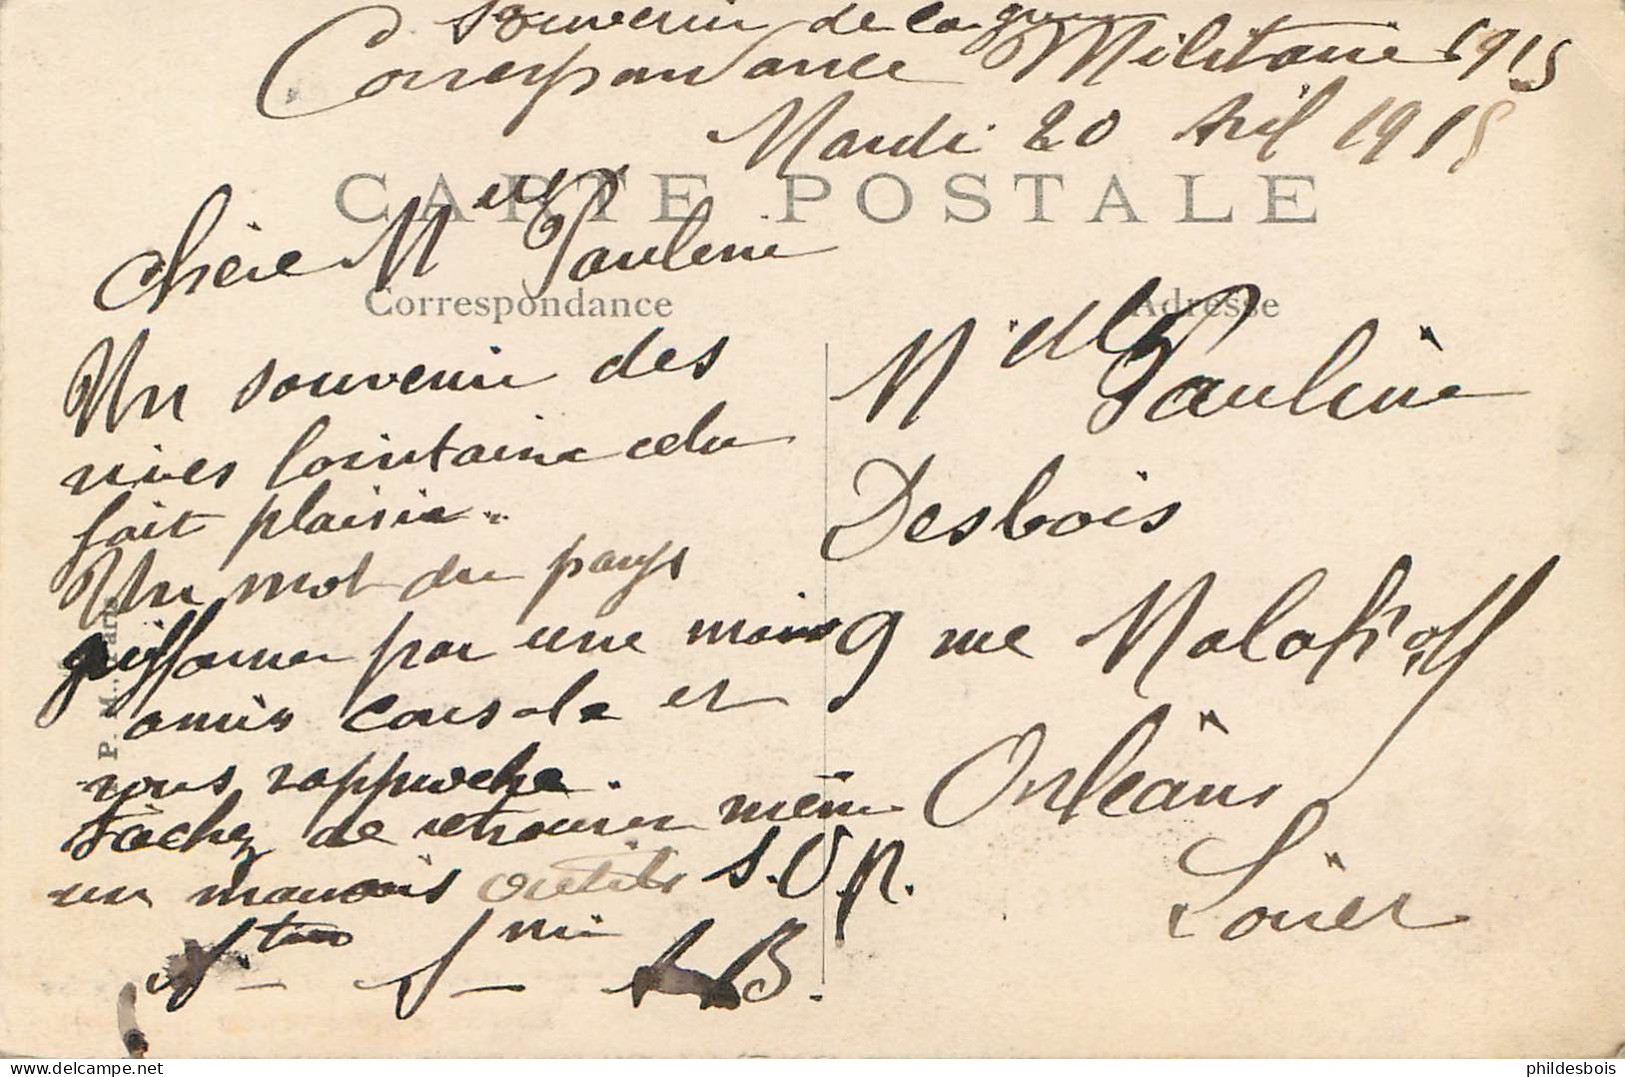 Souvenir de la guerre
Correspondance Militaire 1915
Mardi 20 Avril 1915
CARTE POSTALE
Chère Melle Pauline
Correspondance
Adresse
Un souvenir des
rives lointaine cela
fait plaisir.
Un mot du pays
par une main
amis console et
vous rapproche.
Tâchez de retrouver même
un mauvais outils S.V.P.
A B.
Melle Pauline
Desbois
9 rue Malakoff
Orléans
Loiret
phildesbois